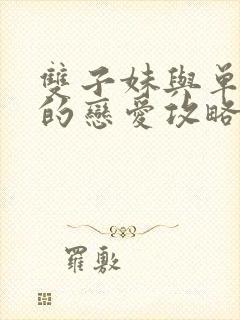 雙子妹與單
的戀愛攻略
羅敷